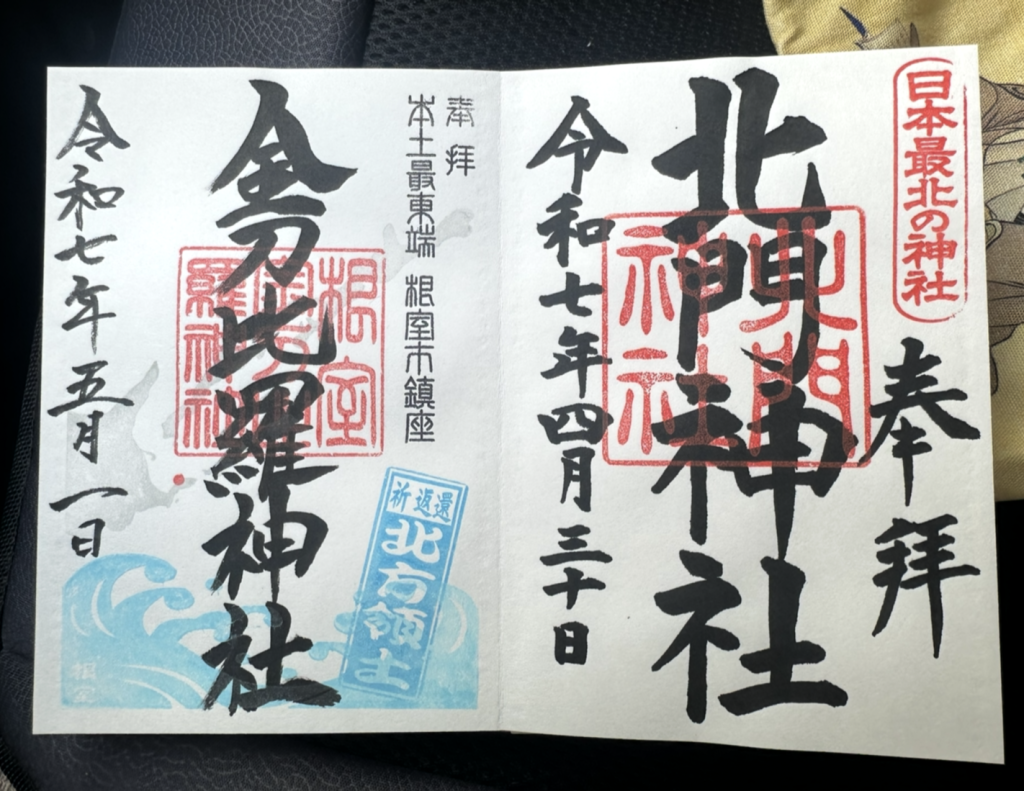 日本最北の神社
奉拝
北門神社
北門
神社
令和七年四月三十日
奉拝
本土最東端 根室市鎮座
金刀比羅神社
根室
金刀比
羅神社
祈返還
北方領土
令和七年五月一日
根室